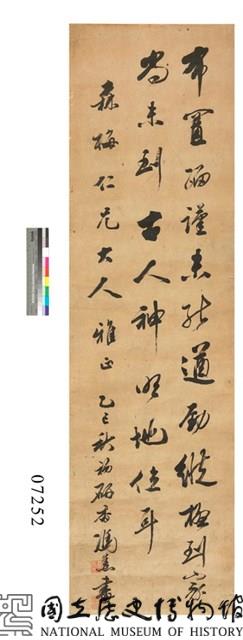 布置宓謹未能遒勁縱極到家
尚未到古人神明地位耳
森梅仁兄大人 雅正 乙巳秋
07252
國立歷史博物館
NATIONAL MUSEUM OF HISTORY